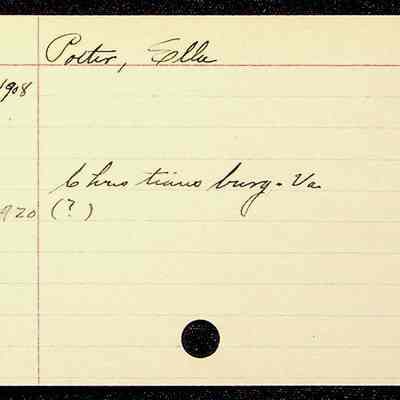 Porter, Ella
1908
Christiansburg - Va.
(?)